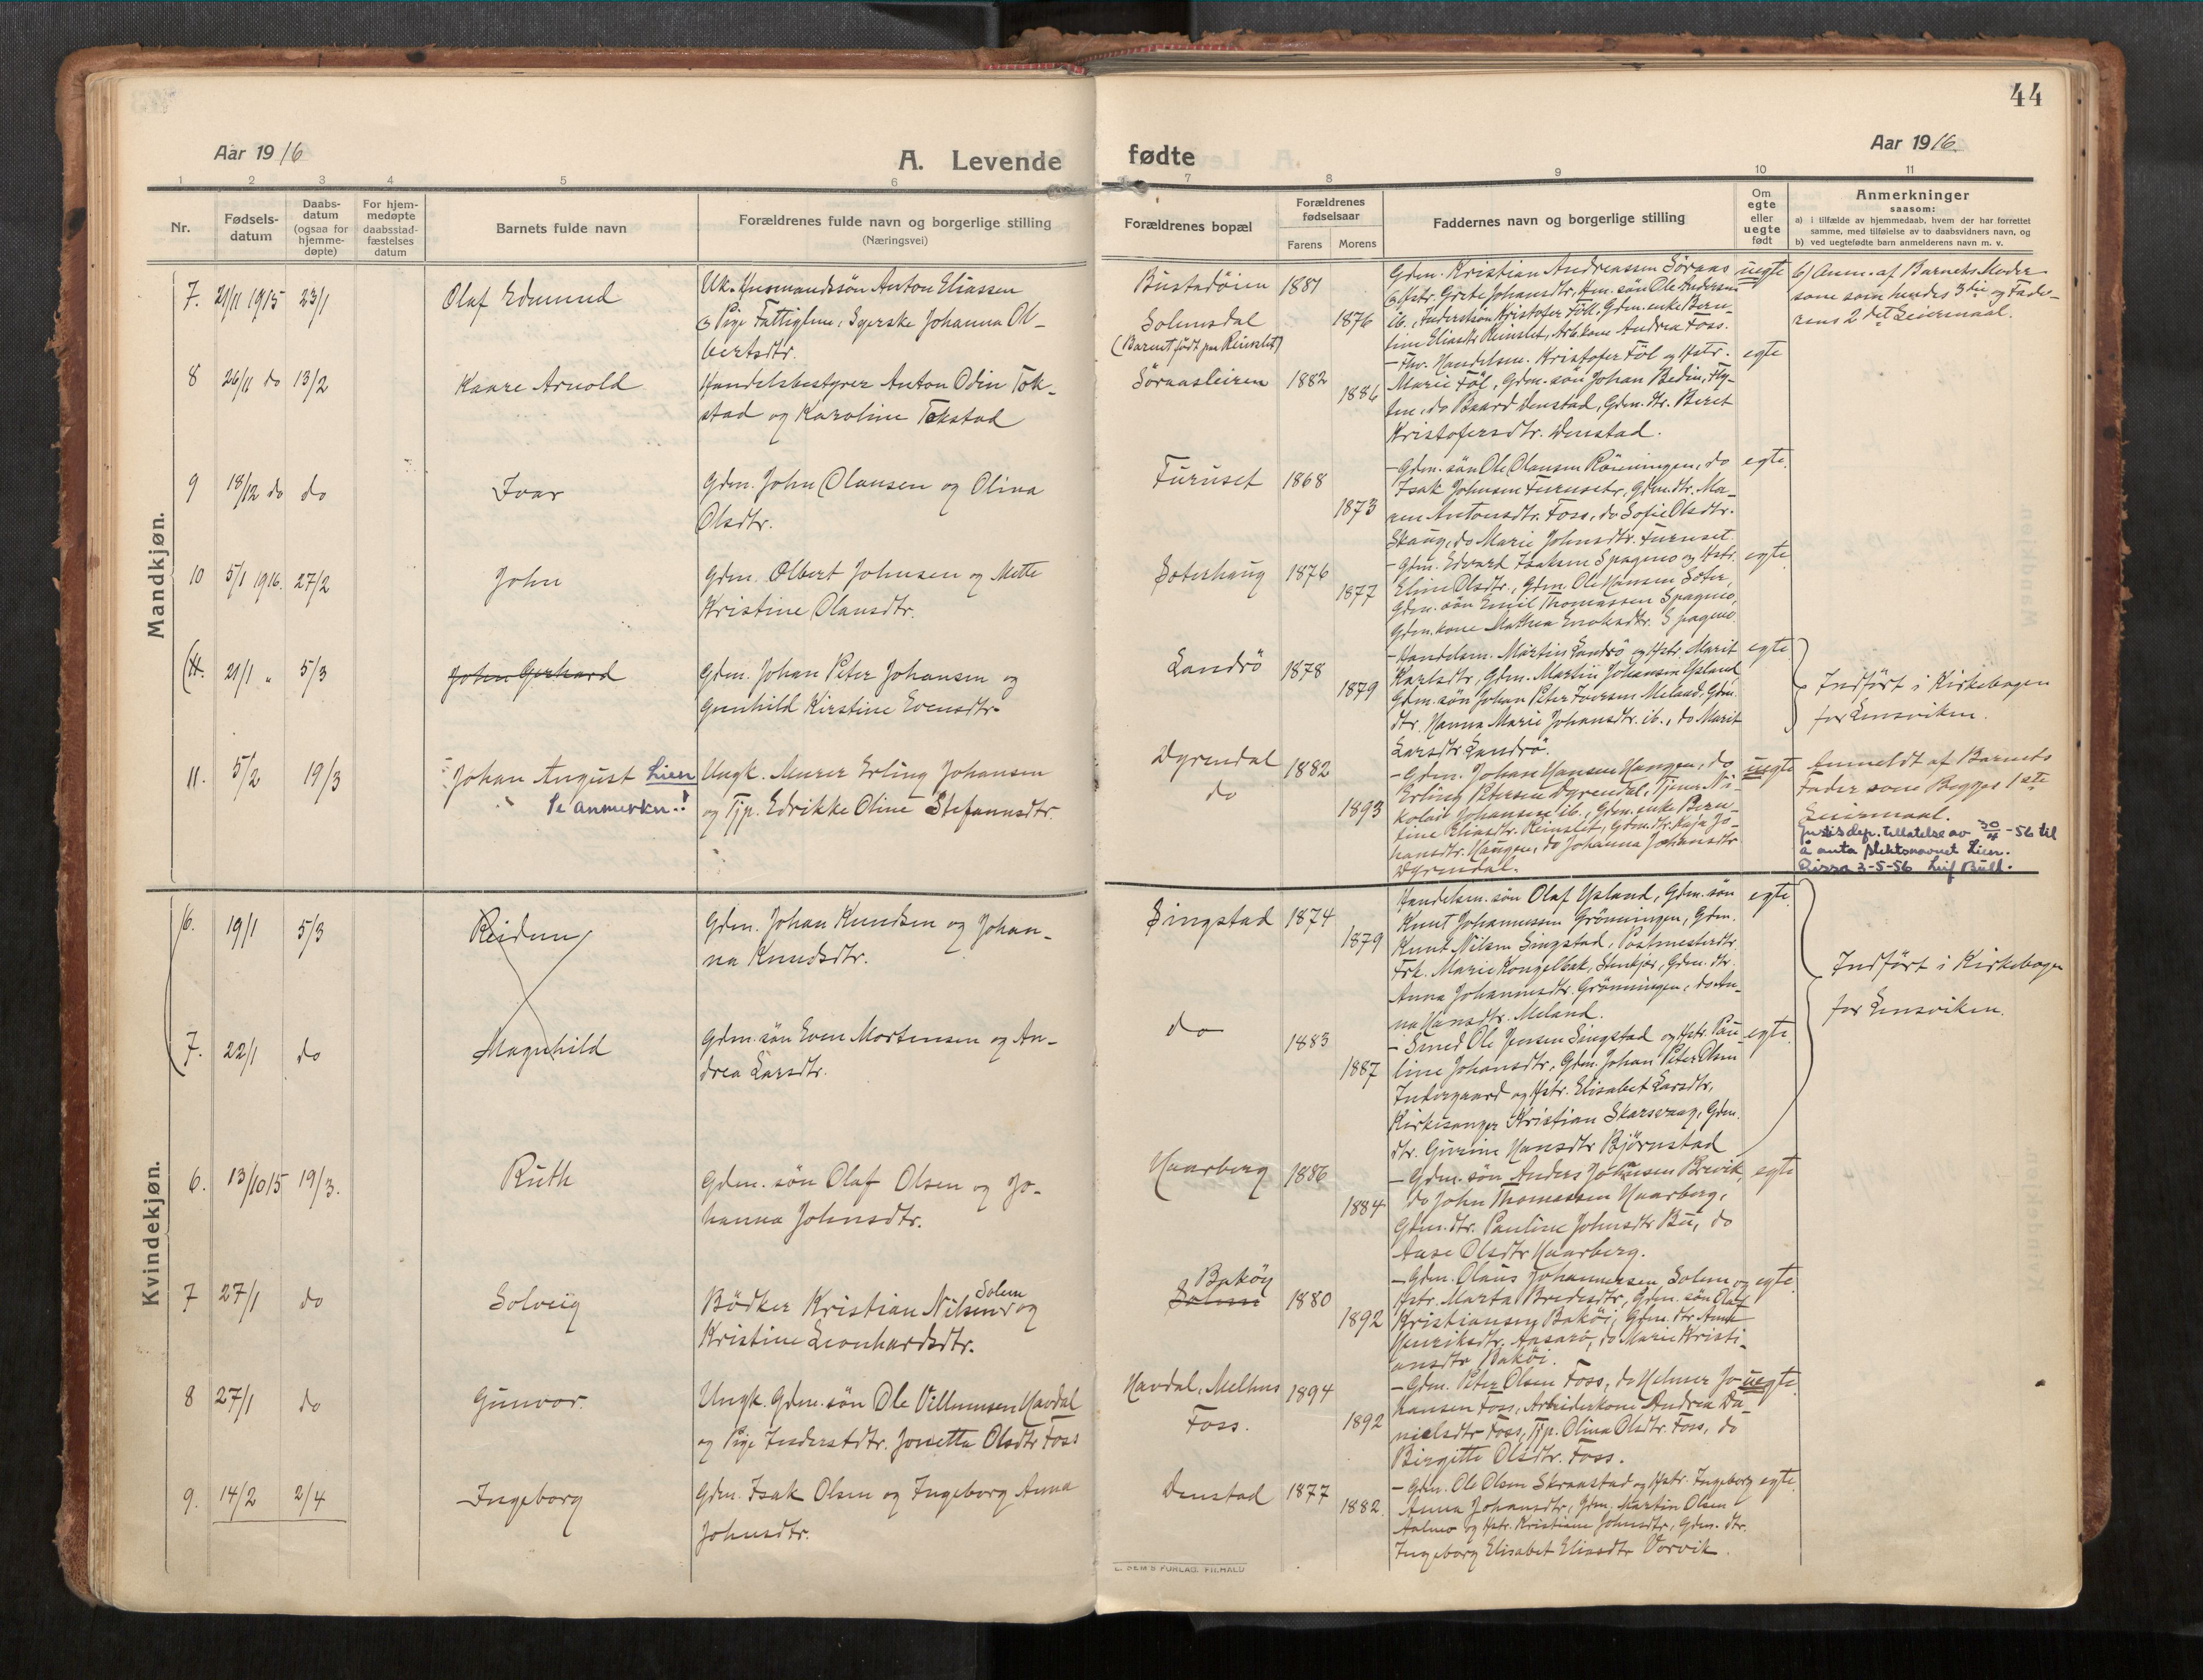 44
Aar 1916
A. Levende
fødte
Aar 1916.
1 2 3 4 5 6 7 8 9 10 11
Nr.
Fødsels-
datum
Daabs-
datum
(ogsaa for
hjemme-
døpte)
For hjem-
medøpte
daabsstad-
fæstelses
datum
Barnets fulde navn
Forældrenes fulde navn og borgerlige stilling
(Næringsvei)
Forældrenes bopæl
Forældrenes
fødselsaar
Farens Morens
Faddernes navn og borgerlige stilling
Om
egte
eller
uegte
født
Anmerkninger
saasom:
a) i tilfælde av hjemmedaab, hvem der har forrettet
samme, med tilføielse av to daabsvidners navn, og
b) ved uegtefødte barn anmelderens navn m. v.
Mandkjøn.
7. 21/11 1915 23/1
Olaf Edmund
Uk. Husmandssøn Anton Eliassen
og Pige Fattiglem: Syerske Johanna Ol-
bertsdtr.
Bustadøien 1881
Solemsdal 1876
(Barnet født paa Reinslet)
Gdm. Kristian Andreassen Søraas
og Hstr. Grete Johansdtr. Hm. søn Ole Andersen
ib., Inderstsøn Kristofer Föll, Gdm. enke Bern-
tine Eliasdtr Reinslet, Arb.kone Andrea Foss.
uegte
b) Anm. af Barnets Moder
som som hendes 3die og Fade-
rens 2det Leiermaal.
8 26/11 do 13/2
Kaare Arnold
Handelsbestyrer Anton Odin Tok-
stad og Karoline Tokstad
Søraasleiren 1882
1886
- Fhv. Handelsm. Kristofer Föl og Hstr.
Marie Föl, Gdm. søn Johan Bedin, Fly-
ten, do Baard Denstad, Gdm. dtr. Beret
Kristofersdtr. Denstad.
egte
9 18/12 do do
Ivar
Gdm. John Olausen og Olina
Olsdtr.
Furuset 1868
1873
- Gdm. søn Ole Olausen Rönningen, do
Isak Johnsen Furuset, Gdm. dtr. Ma-
ren Antonsdtr. Foss, do Sofie Olsdtr.
Skaug, do Marie Johnsdtr. Furuset.
egte.
10 5/1 1916. 27/2
John
Gdm. Olbert Johnsen og Mette
Kristine Olausdtr.
Soterhaug 1876
1877
- Gdm. Edvard Isaksen Spagmo og Hstr.
Eline Olsdtr., Gdm. Ole Hansen Soter,
Gdm. søn Emil Thomassen Spagmo,
Gdm. kone Mathea Enoksdtr. Spagmo.
egte.
(11. 21/1 " 5/3
John Gerhard
Gdm. Johan Peter Johansen og
Gunhild Kirstine Evensdtr.
Landrö 1878
1879
- Handelsm. Martin Landrö og Hstr. Marit
Karlsdtr, Gdm. Martin Johansen Ysland
Gdm. søn Johan Peter Iversen Meland, Gdm.
dtr. Hanna Marie Johansdtr. ib., do Marit
Larsdtr Landrö.
egte.
Indført i Kirkebogen
for Lensviken.
11. 5/2 19/3
Johan August Lien
Se anmerkn.!
Ungk. Murer Erling Johansen
og Tjp. Edrikke Oline Stefansdtr.
Dyrendal 1882
do 1893
- Gdm. Johan Hansen Haugen, do
Erling Petersen Dyrendal, Tjener Ni-
kolai Johansen ib., Gdm. enke Bern-
tine Eliasdtr. Reinslet, Gdm.dtr. Kaja Jo-
hansdtr. Haugen, do Johanna Johansdtr
Dyrendal.
uegte
Anmeldt af Barnets
Fader som Begges 1ste
Leiermaal.
Justisdep. tillatelse av 30/4-56 til
å anta slektsnavnet Lien.
Rissa 3-5-56 Leif Bull.
Kvindekjøn.
(6. 19/1 5/3
Reidun
Gdm. Johan Knudsen og Johan-
na Knudsdtr.
Singstad 1874
1879
Handelsm. søn Olaf Ysland, Gdm. søn
Knut Johannessen Grönningen, Gdm.
Knut Nilsen Singstad, Postmesterdtr.
Frk. Marie Kongelbak, Stenkjer, Gdm. dtr.
Anna Johannesdtr. Grönningen, do An-
na Hansdtr. Meland.
egte.
Indført i Kirkebogen
for Lensviken.
(7. 22/1 do
Magnhild
Gdm. søn Even Mortensen og An-
drea Larsdtr.
do 1883
1887
- Smed Ole Jensen Singstad og Hstr. Pau-
line Johansdtr, Gdm. Johan Peter Olsen
Indergaard og Hstr. Elisabet Larsdtr,
Kirkesanger Kristian Skarsvaag, Gdm.
dtr. Gurine Hansdtr Bjørnstad
egte.
6. 13/10 15 19/3.
Ruth
Gdm. søn Olaf Olsen og Jo-
hanna Johnsdtr.
Haarberg 1886
1884
- Gdm. søn Anders Johnsen Brevik,
do John Thomassen Haarberg,
Gdm. dtr. Pauline Johnsdtr Bü, do
Aase Olsdtr Haarberg.
egte
7 27/1 do
Solveig
Bödker Kristian Nilsen Solem og
Kristine Leonhardsdtr.
Bakøy
Solem 1880
1892
- Gdm. Olaus Johannessen Solem og
Hstr. Marta Bredesdtr, Gdm. søn Olaf
Kristiansen Bakøi, Gdm. dtr Anna
Henriksdtr. Aasarö, do Marie Kristi-
ansdtr Bakøi.
egte.
8 27/1 do
Gunvor.
Ungk. Gdm. søn Ole Villumsen Havdal
og Pige Inderstdtr. Jonetta Olsdtr Foss
Havdal, Melhus 1894
Foss. 1892
- Gdm. Peter Olsen Foss, do Helmer Jo-
hansen Foss, Arbeiderkone Andrea Da-
nielsdtr Foss, Tjp. Olina Olsdtr. Foss, do
Birgitte Olsdtr. Foss.
uegte.
9. 14/2 2/4
Ingeborg
Gdm. Isak Olsen og Ingeborg Anna
Johnsdtr.
Denstad 1877
1882.
- Gdm. Ole Olsen Skraastad og Hstr. Ingeborg
Anna Johansdtr, Gdm. Martin Olsen
Aalmo og Hstr. Kristiane Johnsdtr, Gdm. dtr.
Ingeborg Elisabet Eliasdtr Vorvik.
egte.
E. SEM'S FORLAG, FR.HALD